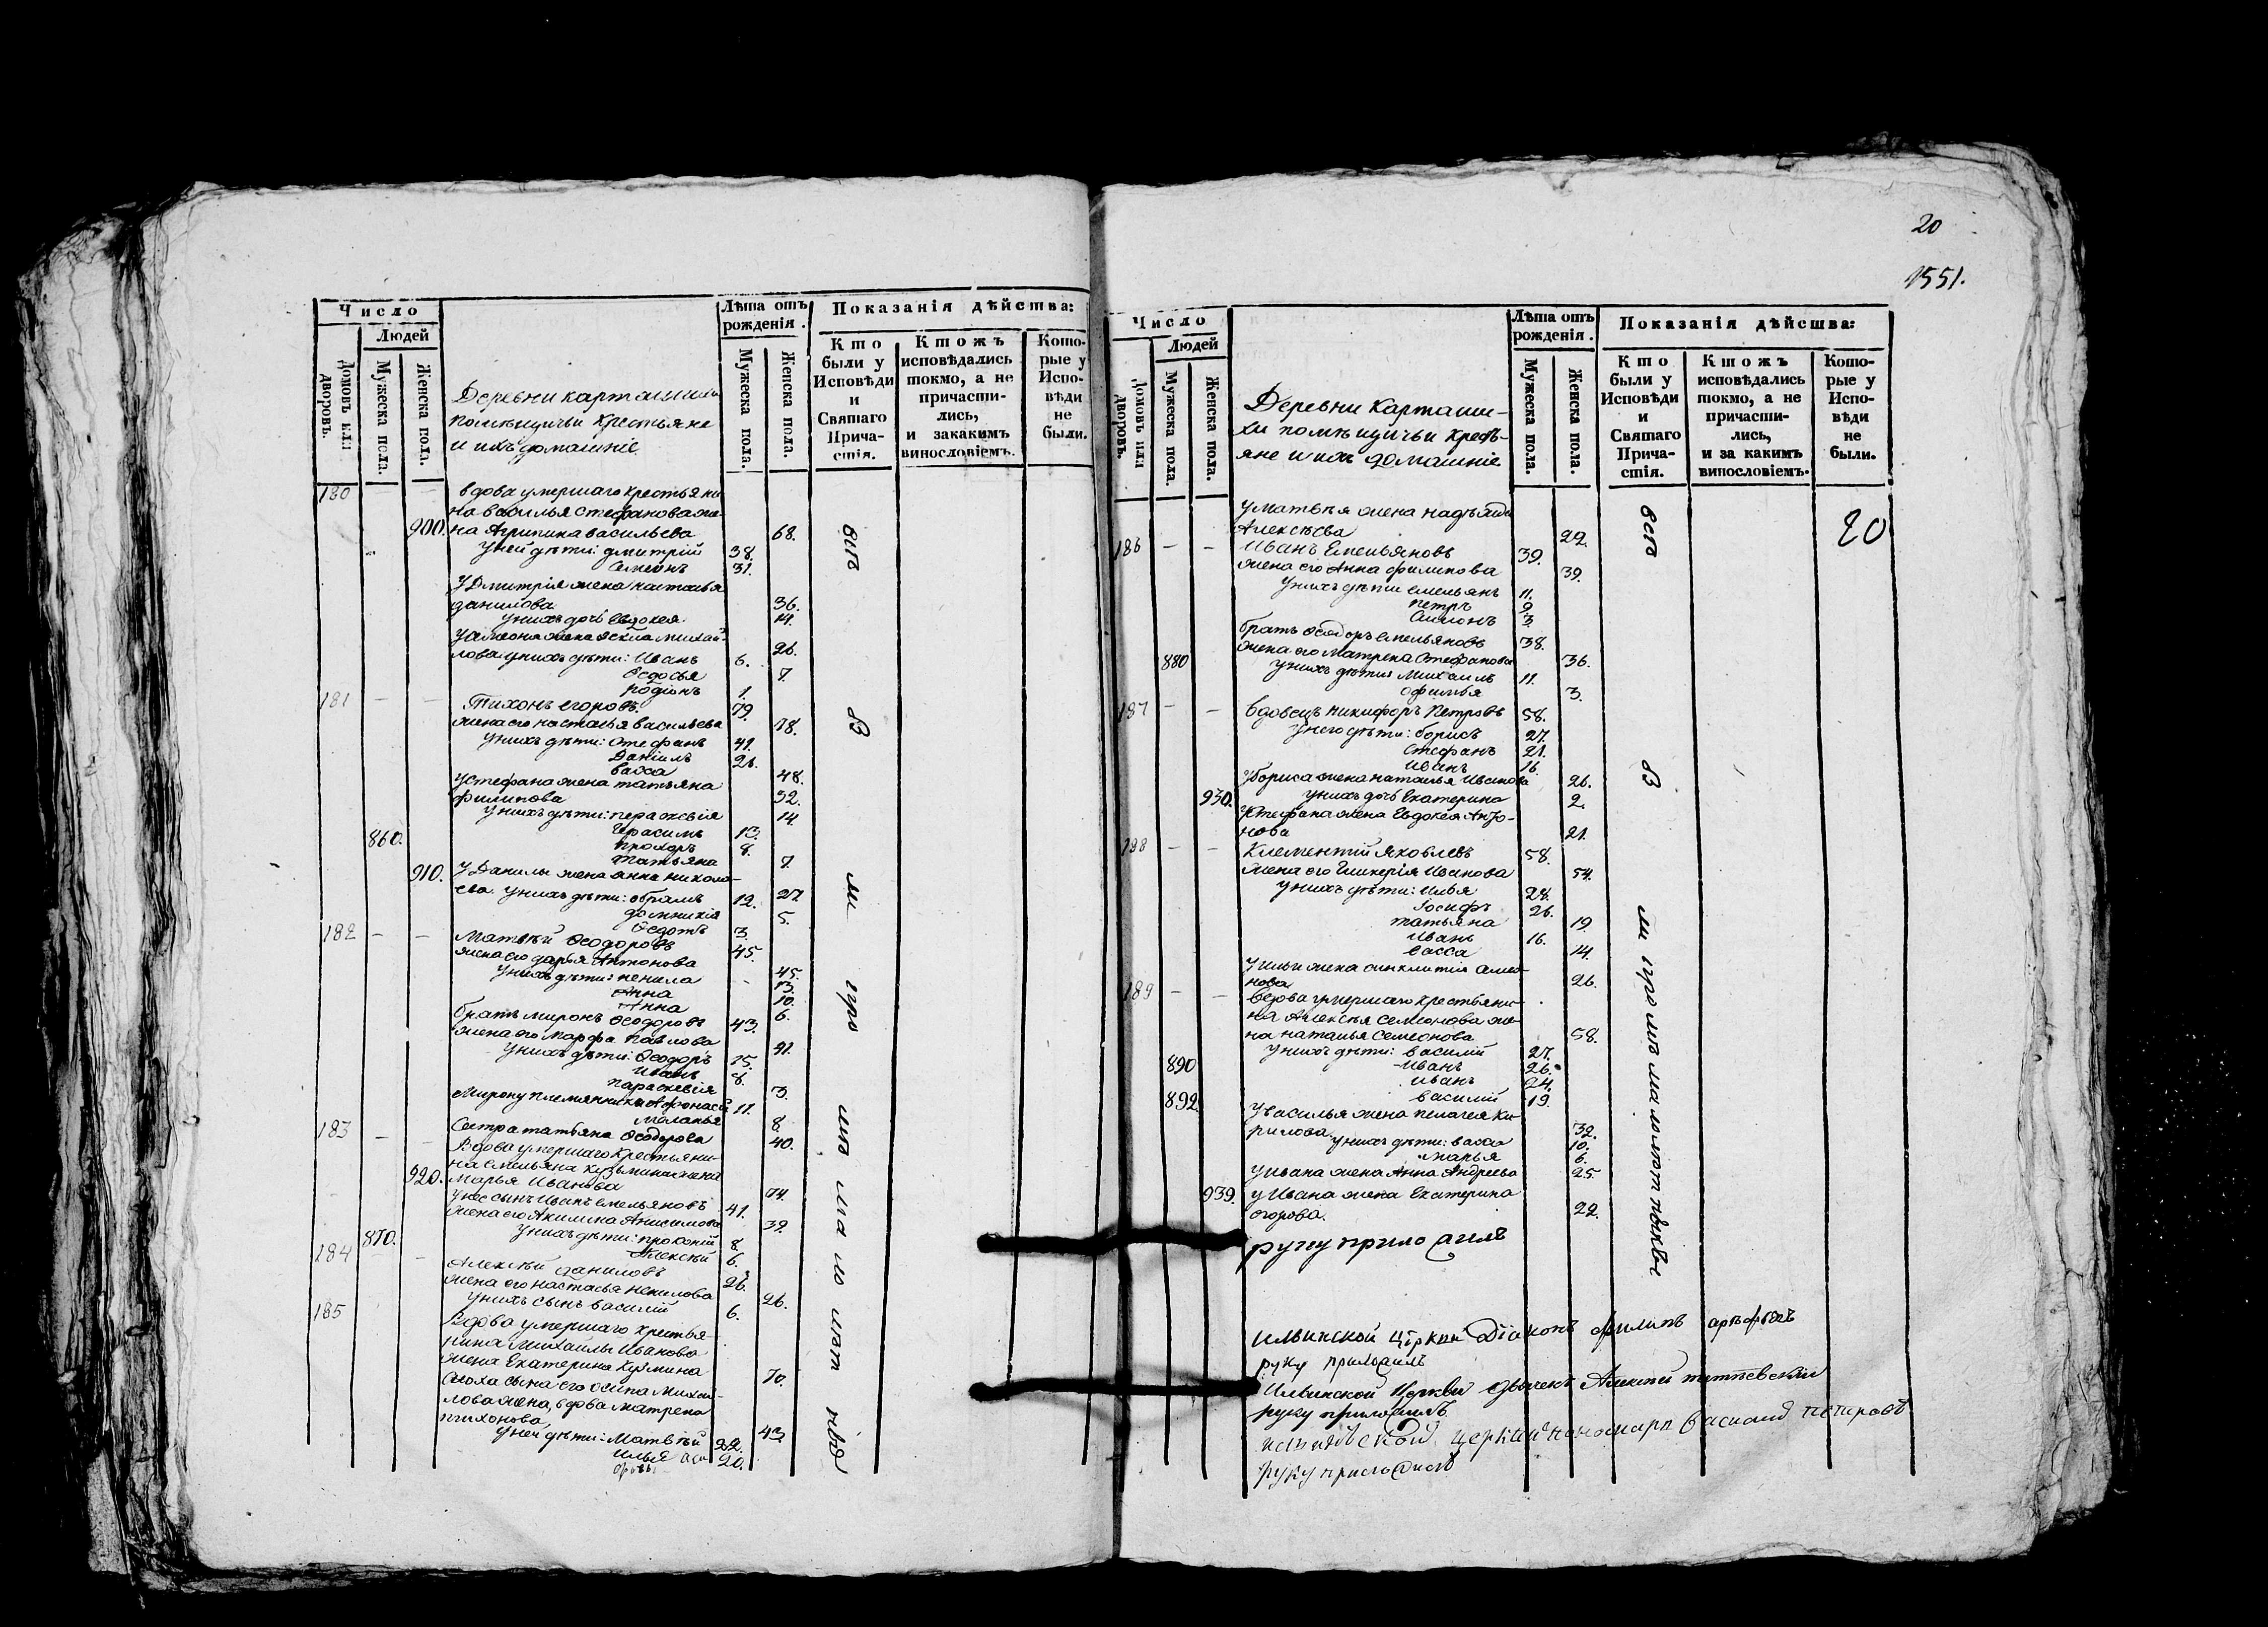 Число
Людей
Домовъ или дворовъ.
Мужеска пола.
Женска пола.
Деревни карташихи
помѣщичьи крестьяне
и ихъ домашніе
Лѣта отъ рожденія.
Мужеска пола.
Женска пола.
Показанія дѣйства:
Кто были у Исповѣди и Святаго Причастія.
Ктожъ исповѣдались токмо, а не причастились, и закакимъ винословіемъ.
Которые у Исповѣди не были.
180 вдова умершаго крестьяни
на василья стефанова же-
900. на Агрипина васильева 68.
у ней дѣти: дмитрій 38.
Семенъ 31.
У Дмитрія жена настасья
данилова 36.
у нихъ дочь Евдокея 14.
У Симеона жена Фекла михай-
лова у нихъ дѣти: Иванъ 6. 26.
Федосья 7.
родіонъ 1.
181 Тихонъ егоровъ. 79.
жена его настасья васильева 78.
у нихъ дѣти: Стефанъ 41.
Даніилъ 26.
васса 48.
у стефана жена татьяна
филипова 32.
у нихъ дѣти: параскевія 14.
860. Герасимъ 13.
прохоръ 8.
татьяна 7.
910. У Данилы жена анна никола-
ева. у нихъ дѣти: абрамъ 12. 27
домникія 5.
Федотъ 3.
182 Матвѣй Феодоровъ 45.
жена его дарья Антонова 45.
у нихъ дѣти: ненила 13.
Анна 10.
Анна 6.
братъ миронъ Феодоровъ 43.
жена его Марфа Павлова 41.
У нихъ дѣти: Феодоръ 15.
Иванъ 8.
параскевія 3.
Мирону племянникъ Афонасій 11.
меланья 8.
Сестра татьяна Феодорова 40.
183 Вдова умершаго крестьяни-
на емельяна кузьмина жена
920. марья Иванова 74.
у нее сынъ Иванъ емельяновъ 41.
жена его Акилина Анисимова 32.
870. У нихъ дѣти: прокопій 8.
Алексѣй 6.
184 Алексѣй даниловъ 26.
жена его настасья ненилова 26.
У нихъ сынъ василій 6.
185 Вдова умершаго крестья-
нина Михайлы Иванова
жена Екатерина кузмина 70.
сноха сына его осипа Михаи-
лова жена, вдова матрена
тихонова 43.
У ней дѣти: Матвѣй 22.
Илья 20.
20
1551.
Число
Людей
Домовъ или дворовъ.
Мужеска пола.
Женска пола.
Деревни Карташи-
хи помѣщичьи кресть-
яне и ихъ домашніе
Лѣта отъ рожденія.
Мужеска пола.
Женска пола.
Показанія дѣйсшва:
Кто были у Исповѣди и Святаго Причастія.
Ктожъ исповѣдались токмо, а не причастились, и за какимъ винословіемъ.
Которые у Исповѣди не были.
20
у матвѣя жена надѣжда
Алексѣева 22.
186 Иванъ Емельяновъ 39.
жена его Анна филипова 39.
у нихъ дѣти емельянъ 11.
петръ 9.
Симонъ 3.
братъ Феодоръ емельяновъ 38.
880 жена его Матрена Стефанова 36.
у нихъ дѣти Михаилъ 11.
офимья 3.
187 вдовецъ никифоръ Петровъ 58.
У него дѣти: борисъ 27.
Стефанъ 21.
Иванъ 16.
У бориса жена наталья Иванова 26.
930. у нихъ дочь Екатерина 2.
У Стефана жена Евдокея Анто-
нова 21.
188 Климентій Яковлевъ 58.
жена его Гликерія Иванова 54.
у нихъ дѣти: Илья 28.
Іосифъ 26.
татьяна 19
Иванъ 16.
васса 14.
у Ильи жена синклитія Симо-
нова 26.
189 вдова умершаго крестьяни-
на Алексѣя Семенова же-
на наталья Семенова 58.
у нихъ дѣти: василій 27.
890 Иванъ 26.
иванъ 24.
892 василій 19.
у василья жена пелагея ки-
рилова 32.
у нихъ дѣти: васса 10.
марья 6.
у Ивана жена Анна Андреева 25.
939. у Ивана жена Екатерина
егорова. 22.
руку приложилъ
ильинской церкви Діаконъ филипъ
руку приложилъ
Ильинской Церкви дьячекъ Алексѣй
руку приложилъ
церкви пономарь василій петровъ
руку приложилъ